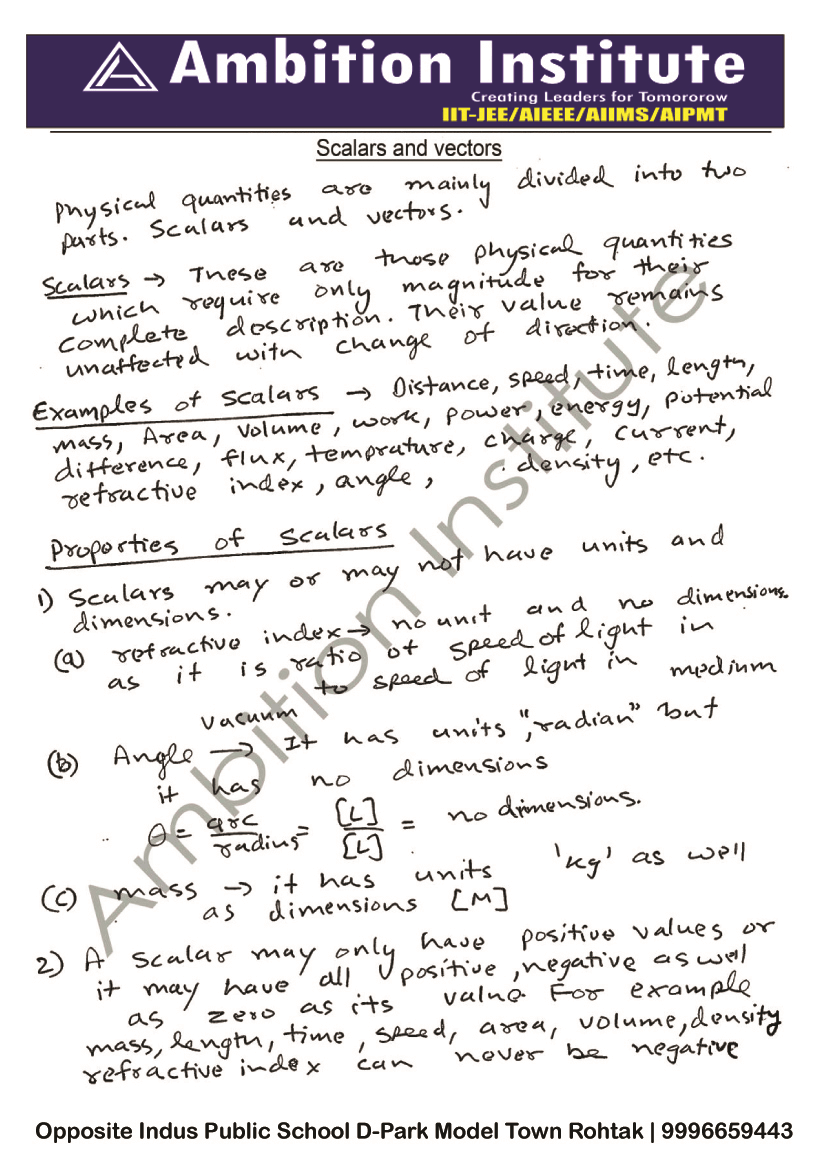 Ambition Institute
Creating Leaders for Tomororow
IIT-JEE/AIEEE/AIIMS/AIPMT
Scalars and vectors
Physical quantities are mainly divided into two
parts. Scalars and vectors.
Scalars → These are those physical quantities
which require only magnitude for their
complete description. Their value remains
unaffected with change of direction.
Examples of scalars → Distance, speed, time, length,
mass, Area, volume, work, power, energy, potential
difference, flux, temprature, charge, current,
refractive index, angle, density, etc.
Properties of scalars
1) Scalars may or may not have units and
dimensions.
(a) refractive index → no unit and no dimensions.
as it is ratio of speed of light in
vacuum to speed of light in medium
(b) Angle → It has units ",radian" but
it has no dimensions
θ = arc/radius = [L]/[L] = no dimensions.
(c) mass → it has units 'kg' as well
as dimensions [M]
2) A scalar may only have positive values or
it may have all positive, negative as well
as zero as its value. For example
mass, length, time, speed, area, volume, density
refractive index can never be negative
Ambition Institute
Opposite Indus Public School D-Park Model Town Rohtak | 9996659443